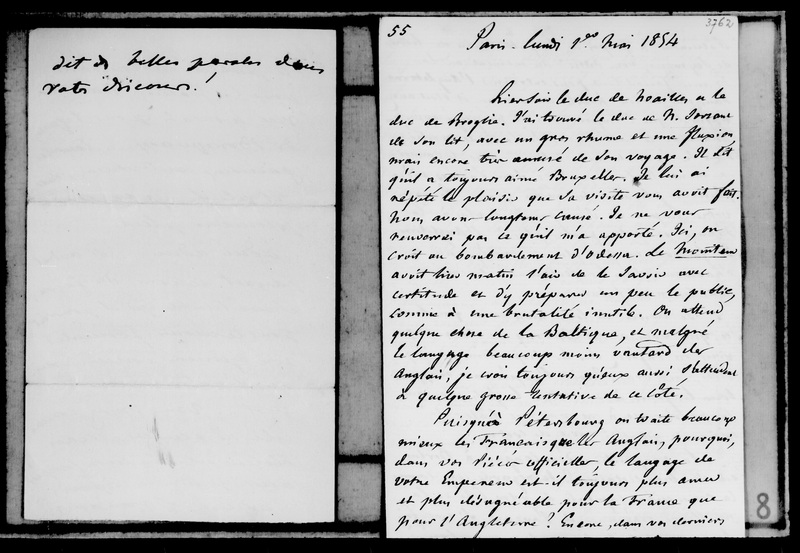 dit de belles paroles dans
votre discours !
55
3762
Paris - lundi 1er Mai 1854
Hier soir le duc de Noailles et le
duc de Broglie. J'ai trouvé le duc de N. sortant
de son lit, avec un gros rhume et une fluxion,
mais encore très amusé de son voyage. Il dit
qu'il a toujours aimé Bruxelles. Je lui ai
répété le plaisir que sa visite vous avoit fait.
Nous avons longtems causé. Je ne vous
renverrai pas ce qu'il m'a apporté. Ici, on
croit au bombardement d'Odessa. Le Moniteur
avoit hier matin l'air de le savoir avec
certitude et d'y préparer un peu le public,
comme à une brutalité inutile. On attend
quelque chose de la Baltique, et malgré
le langage beaucoup moins vantard des
Anglais, je crois toujours qu'eux aussi s'attendent
à quelque grosse tentative de ce côté.
Puisqu'à Pétersbourg on traite beaucoup
mieux les Français que les Anglais, pourquoi,
dans vos pièces officielles, le langage de
votre Empereur est-il toujours plus amer
et plus désagréable pour la France que
pour l'Angleterre ? Encore, dans vos derniers
8